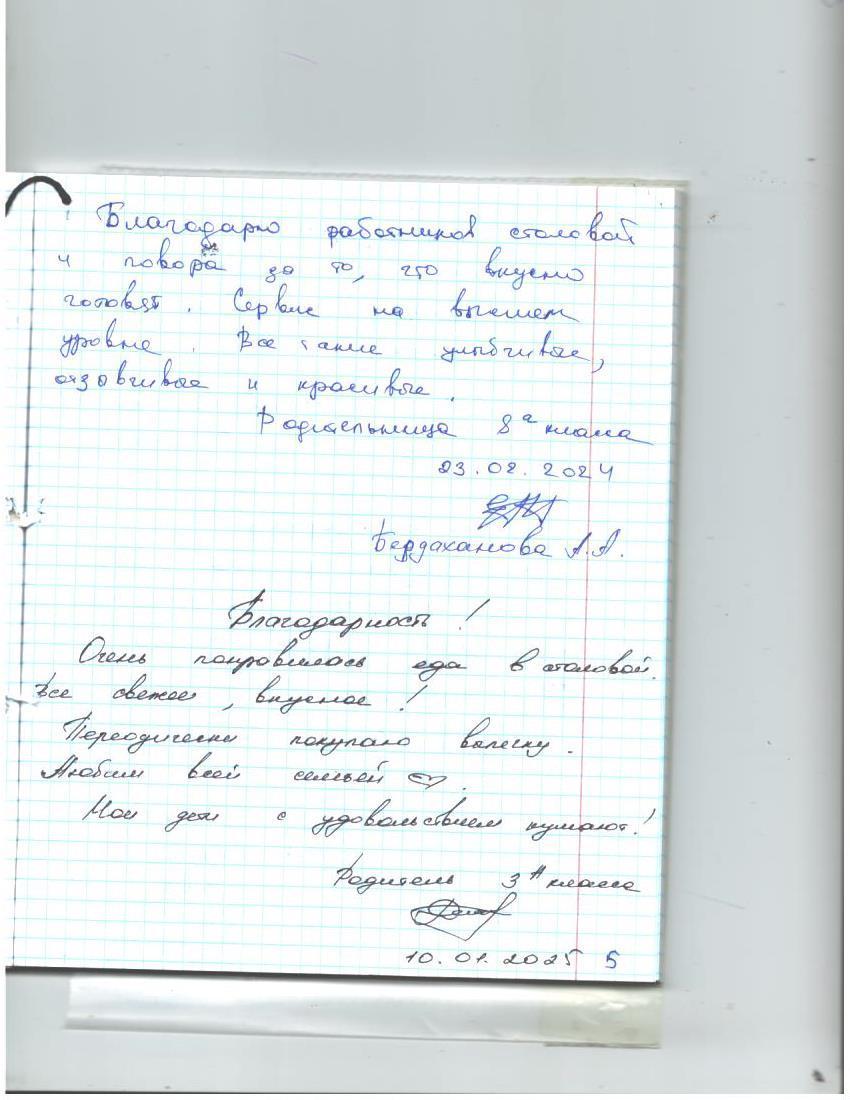 Благодарю работников столовой
и повора за то, что вкусно
готовят. Сервис на высшем
уровне. Все такие улыбчивые,
отзовчивые и красивые.
Родительница 8 а класса
23.02.2024
Бердаханова А.А.
Благодарность!
Очень понравилось еда в столовой.
Все свежее, вкусное!
Переодически покупаю выпечку.
Любим всей семьей ♡.
Мои дети с удовольствием кушают!
Родитель 3 А класса
10.01.2025 5